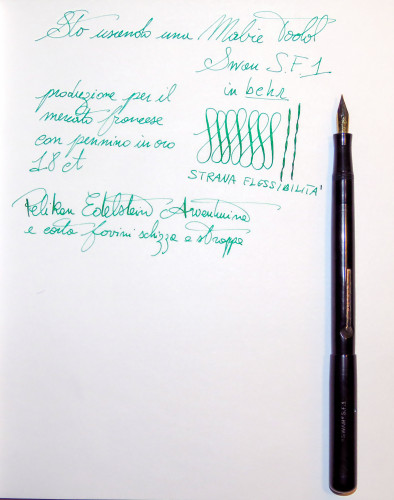 Sto usando una Mabie Todd
Swan S.F 1
in bchr
produzione per il
mercato francese
con pennino in oro
18 ct
STRANA FLESSIBILITA'
Pelikan Edelstein Aventurine
e carta fovini schizza e strappa